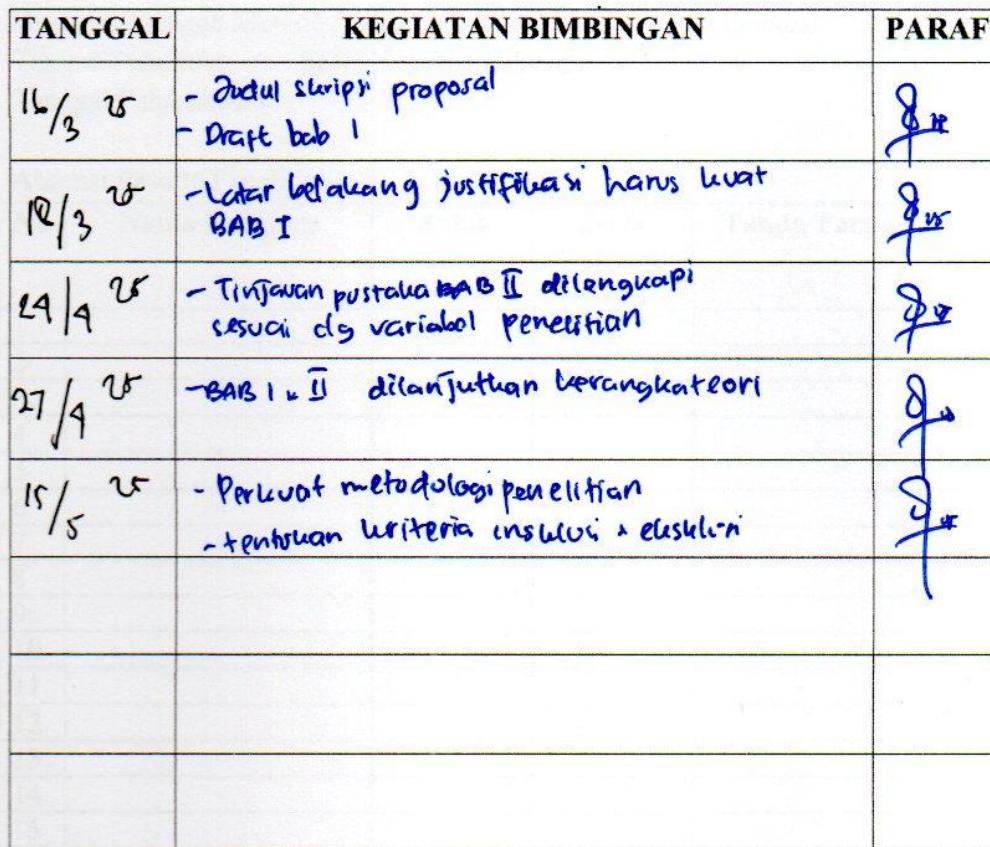 TANGGAL KEGIATAN BIMBINGAN PARAF
16/3 25 - Judul skripsi proposal
- Draft bab 1
18/3 25 - Latar belakang justifikasi harus kuat
BAB I
24/4 25 - Tinjauan pustaka BAB II dilengkapi
sesuai dg variabel penelitian
27/4 25 - BAB I & II dilanjutkan kerangka teori
15/5 25 - Perkuat metodologi penelitian
- tentukan kriteria inklusi & eksklusi